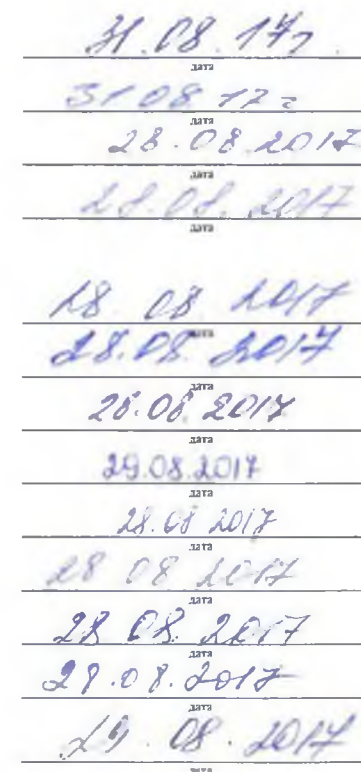 31.08.17г.
дата
31.08.17г
дата
28.08.2017
дата
28.08.2017
дата
28 08 2017
дата
28.08 2017
дата
28.08 2017
дата
29.08.2017
дата
28.08 2017
дата
28 08 2017
дата
28 08. 2017
дата
28.08.2017
дата
29.08.2017
дата